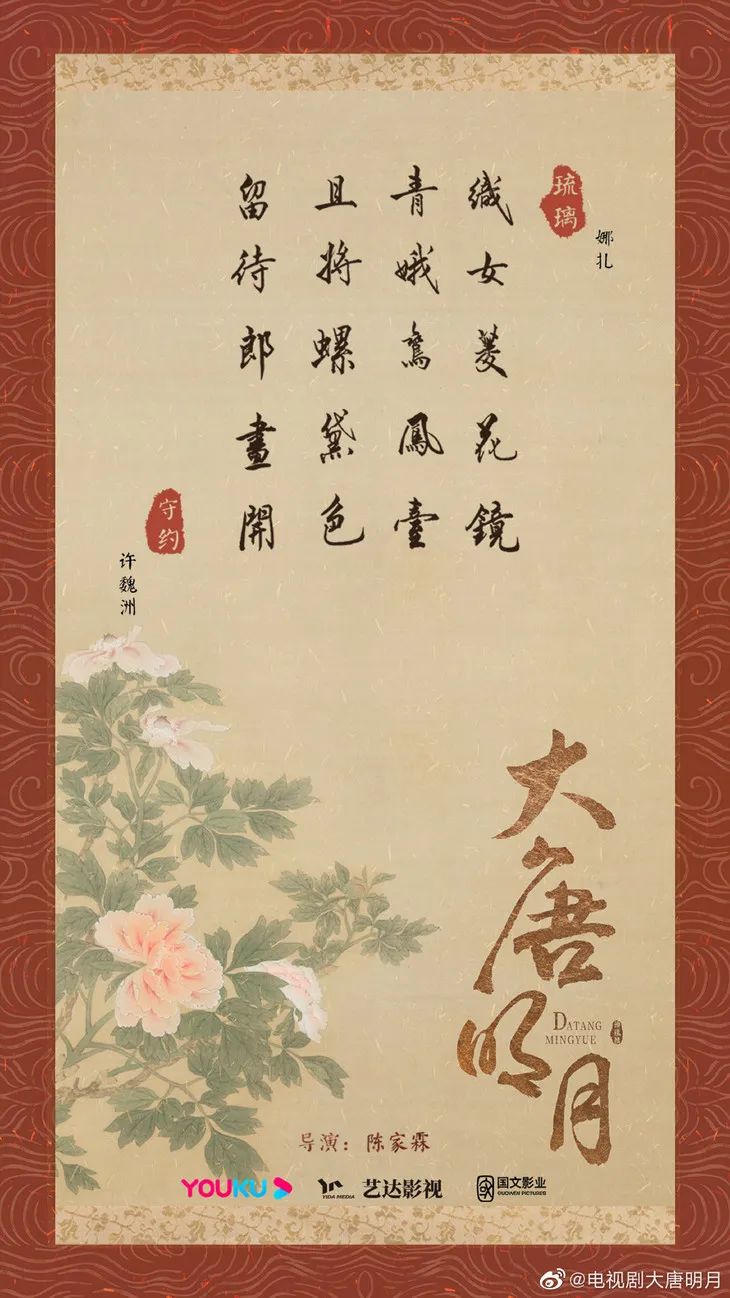 琉璃
娜扎
織女菱花鏡
青娥鸞鳳臺
且將螺黛色
留待郎畫開
守约
许魏洲
大唐明月
DATANG
MINGYUE
导演：陈家霖
YOUKU
YIDA MEDIA
艺达影视
国文影业
GUOWEN PICTURES
@电视剧大唐明月